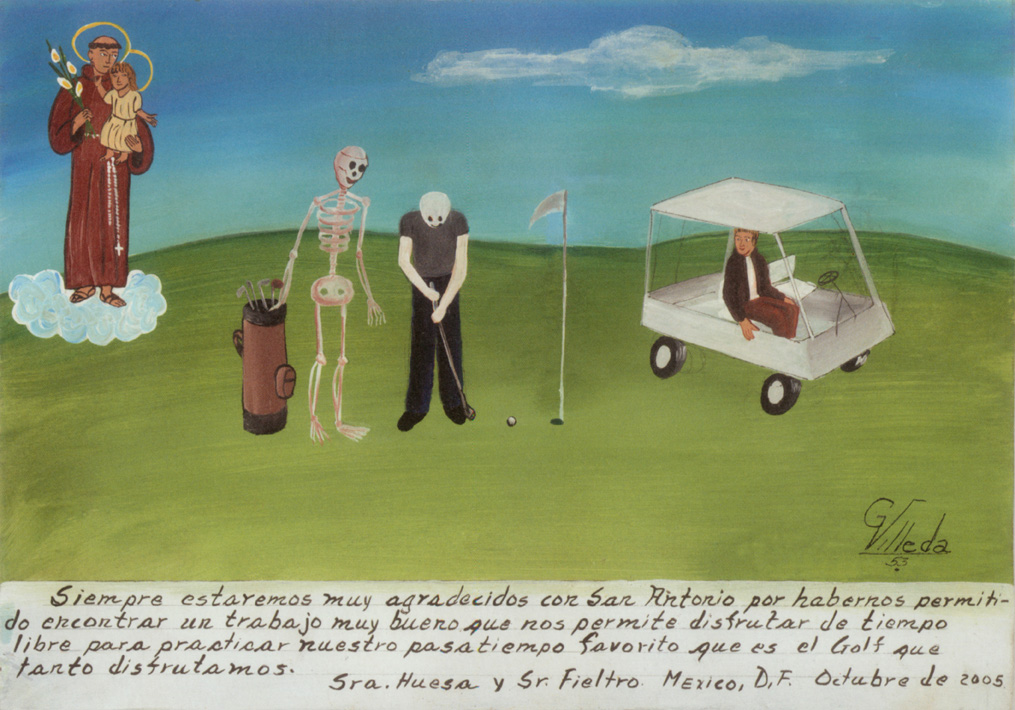 GVilleda
53
Siempre estaremos muy agradecidos con San Antonio por habernos permiti-
do encontrar un trabajo muy bueno que nos permite disfrutar de tiempo
libre para practicar nuestro pasatiempo favorito que es el Golf que
tanto disfrutamos.
Sra. Huesa y Sr. Fieltro. Mexico, D.F. Octubre de 2005